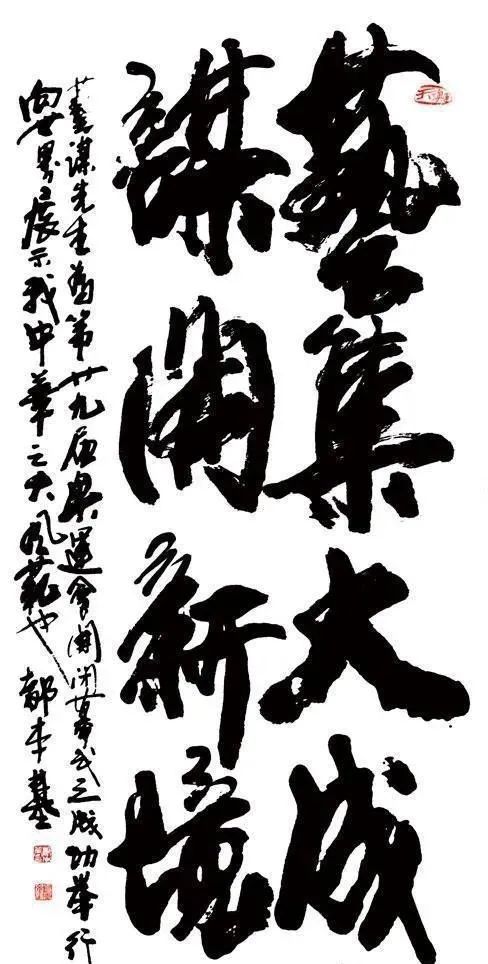 藝集大成
謀開新境
藝謀先生為第廿九屆奧運會開閉幕式之成功舉行
向世界展示我中華之大風範也 都本基